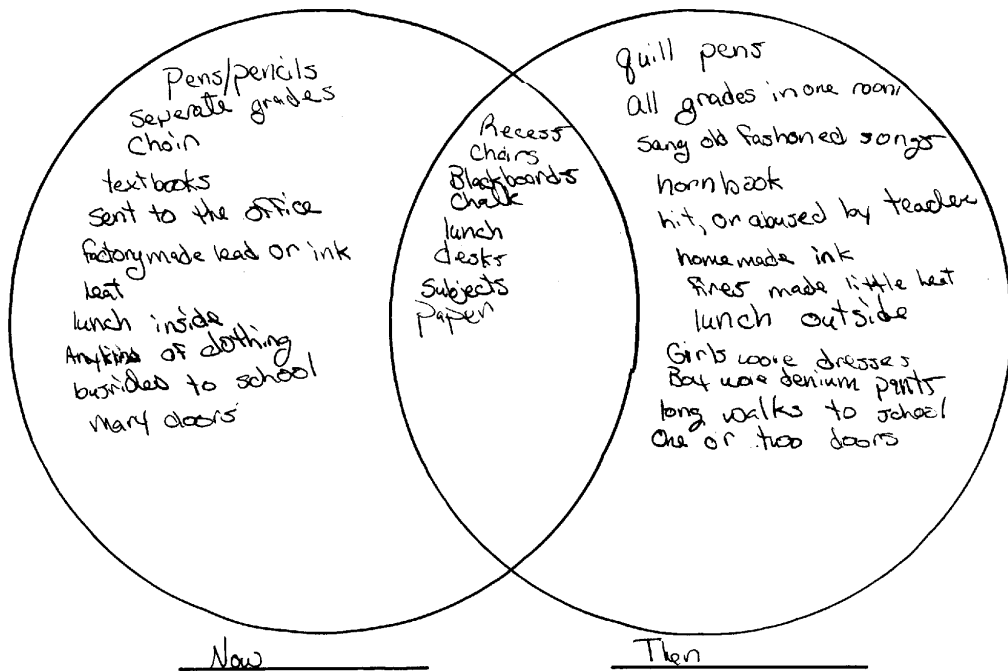 Pens/pencils
seperate grades
Choir
textbooks
sent to the office
factorymade lead or ink
heat
lunch inside
Anykind of clothing
busrides to school
many doors
Recess
Chairs
Blackboards
Chalk
lunch
desks
Subjects
paper
quill pens
all grades in one room
Sang old fashioned songs
hornbook
hit, or abused by teacher
homemade ink
fires made little heat
lunch outside
Girls wore dresses
Boy wore denium pants
long walks to school
One or two doors
Now
Then